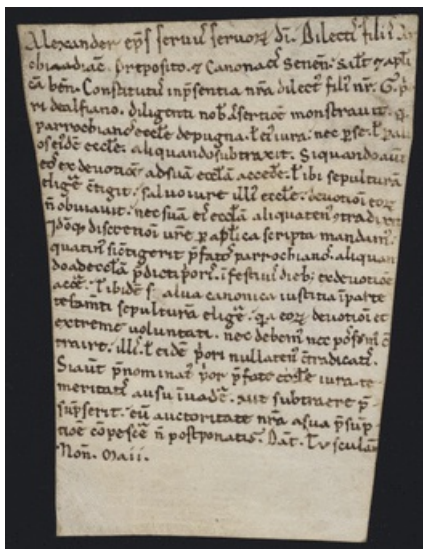 Alexander ep̄s servus servoꝝ dī. Dilectis filiis Ar
chi Preposito. ⁊ Canonicis Senen̄. Salt̄ ⁊ apl̄i
cā ben̄. Constitutus in p̄sentia nr̄a dilectus filius nr̄. G. p̄
diligenti nob̄ assertione monstravit.
parrochianos eccl̄e de pugna. iura: nec per se.
eccl̄e. aliquando subtraxit. Si quando aūt
ex devotione ad suā eccl̄iā accedē. ł ibi sepulturā
eligē cōtigit. salvo iure illius eccl̄e. devotioni eoꝝ
n̄ obviavit. nec suā eis eccl̄iā aliquatenus
Idoq; discretioni vr̄e per apl̄ica scripta mandamus.
quatin si cōtigerit p̄fatos parrochianos. aliquan
do ad eccl̄iā p̄dicti p̄oris. ī festivis dieb; ex devotione
accē. ł ibidē salva canonica iustitia
sepulturā eligē. q̄a eoꝝ devotioni et
extreme voluntati. nec debemus nec possumus cō
traire. illis ł eidē p̄ori nullatenus cōtradicatis.
Si aūt p̄nominatus p̄or p̄fate eccl̄e iura te
meritatis ausu īvadē. aut subtraere p̄
sūpserit. eū auctoritate nr̄a a sua p̄sūp
tiōe cōpescē n̄ postponatis. Dat̄. Tusculan̄
Non̄. Maii.